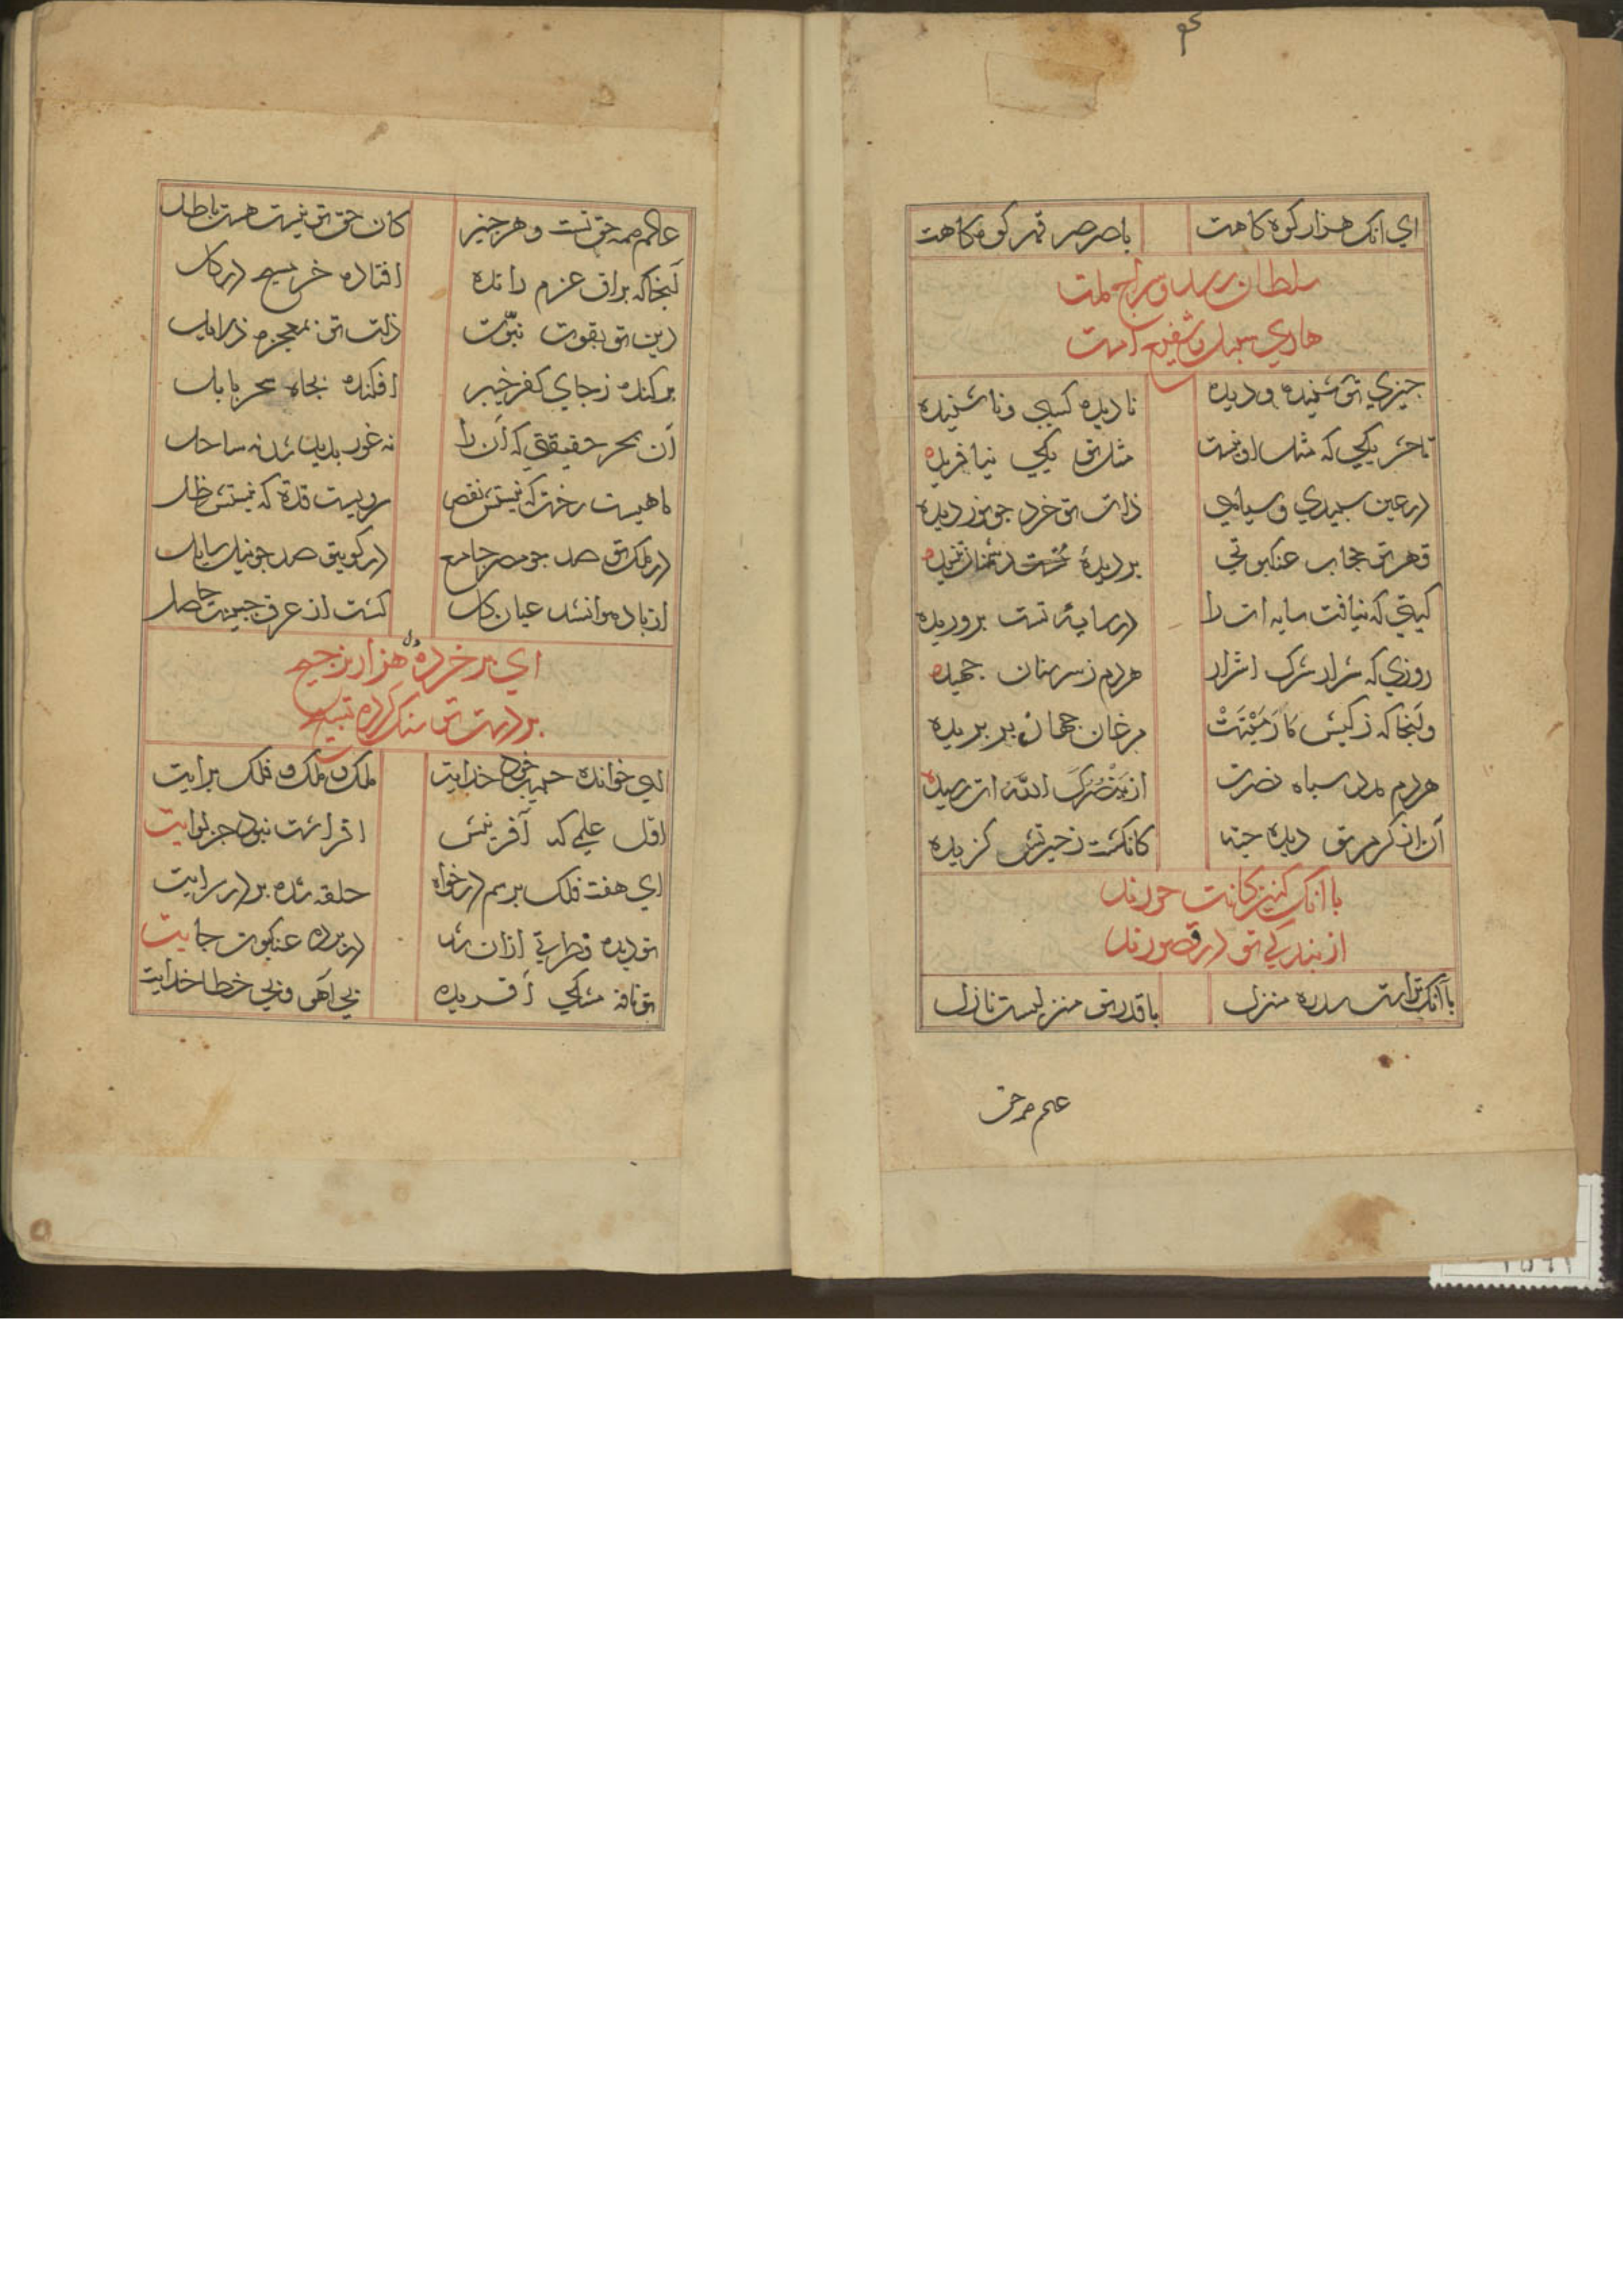 اي انک هزار کوه کاهت با صرصر قهر کوه کاهت
سلطان رسل و سراج ملت
هادي سبل و شفیع امت
جیزي تو شنیده و دیده نادیده کسی و ناشنیده
تا حشر یکی که مثل او نیست مثل تو یکی نیافریده
در عین سبیدي و سیاهي ذات تو خرد جو نور دیده
قهر تو حجاب عنکبوتي بر دیدهٔ دشمنان تنیده
کیتي که نیافت سایه ات را در سایهٔ تست بروریده
روزي که شرار شرک اشرار هردم ز سر سنان جهیده
وانجا که ز کیش مَا رَمَیْتَ مرغان جهان بر بریده
هردم مدد سباه نصرت از یَنْصُرَکَ الله ات رسیده
آن از کرم تو دیده کانکشت ز حیرتش کزیده
با انک کنیزکانت حورند
از بندکي تو در قصورند
با آنک تراست سدره منزل با قدر تو منزلیست نازل
عالم همه حق تست و هر جیز کان حق تو نیست هست باطل
آنجا که براق عزم رانده افتاده خر مسیح در کل
دین تو بقوت نبوّت ذات تو بمعجزه
برکنده ز جاي کفر خیبر افکنده بجاه سحر بابل
آن بحر حقیقتي که آن را نه غور بدید شد نه ساحل
ماهیست رخت که نیستش نقص سرویست قدت که نیستش ظل
در ملک تو صد جو مصر جامع در کوي تو صد جو نیل سایل
از باد هوا نشد عیان کل کشت از عرق جبینت حاصل
اي بر خرد هزار ترجیح
بر دست تو سنک کرده تسبیح
اي خوانده حبیب خود خدایت ملک و ملک و فلک برایت
اول علمی که آفرینش افراشت نبود جز لوایت
اي هفت فلک بر سم درخواه حلقه شده بر در سرایت
تو دیده و ازان شد در برده عنکبوت جایت
تو نافه مشکي آفریده بي آهو و بي خطا خدایت
عالم همه حق